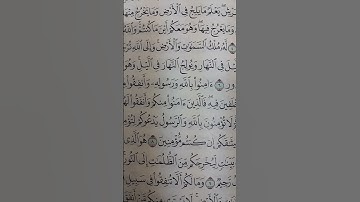 يَعْلَمُ مَا يَلِجُ فِى ٱلْأَرْضِ وَمَا يَخْرُجُ مِنْهَا
وَمَا يَعْرُجُ فِيهَا وَهُوَ مَعَكُمْ أَيْنَ مَا كُنتُمْ وَٱللَّهُ
لَّهُۥ مُلْكُ ٱلسَّمَٰوَٰتِ وَٱلْأَرْضِ وَإِلَى ٱللَّهِ
فِى ٱلنَّهَارِ وَيُولِجُ ٱلنَّهَارَ فِى ٱلَّيْلِ وَهُوَ
ءَامِنُوا۟ بِٱللَّهِ وَرَسُولِهِۦ وَأَنفِقُوا۟
فِيهِ فَٱلَّذِينَ ءَامَنُوا۟ مِنكُمْ وَأَنفَقُوا۟
لَا تُؤْمِنُونَ بِٱللَّهِ وَٱلرَّسُولُ يَدْعُوكُمْ
إِن كُنتُم مُّؤْمِنِينَ ٨ هُوَ ٱلَّذِى
لِّيُخْرِجَكُم مِّنَ ٱلظُّلُمَٰتِ إِلَى ٱلنُّورِ
رَّحِيمٌ ٩ وَمَا لَكُمْ أَلَّا تُنفِقُوا۟ فِى سَبِيلِ
وَٱلْأَرْضِ